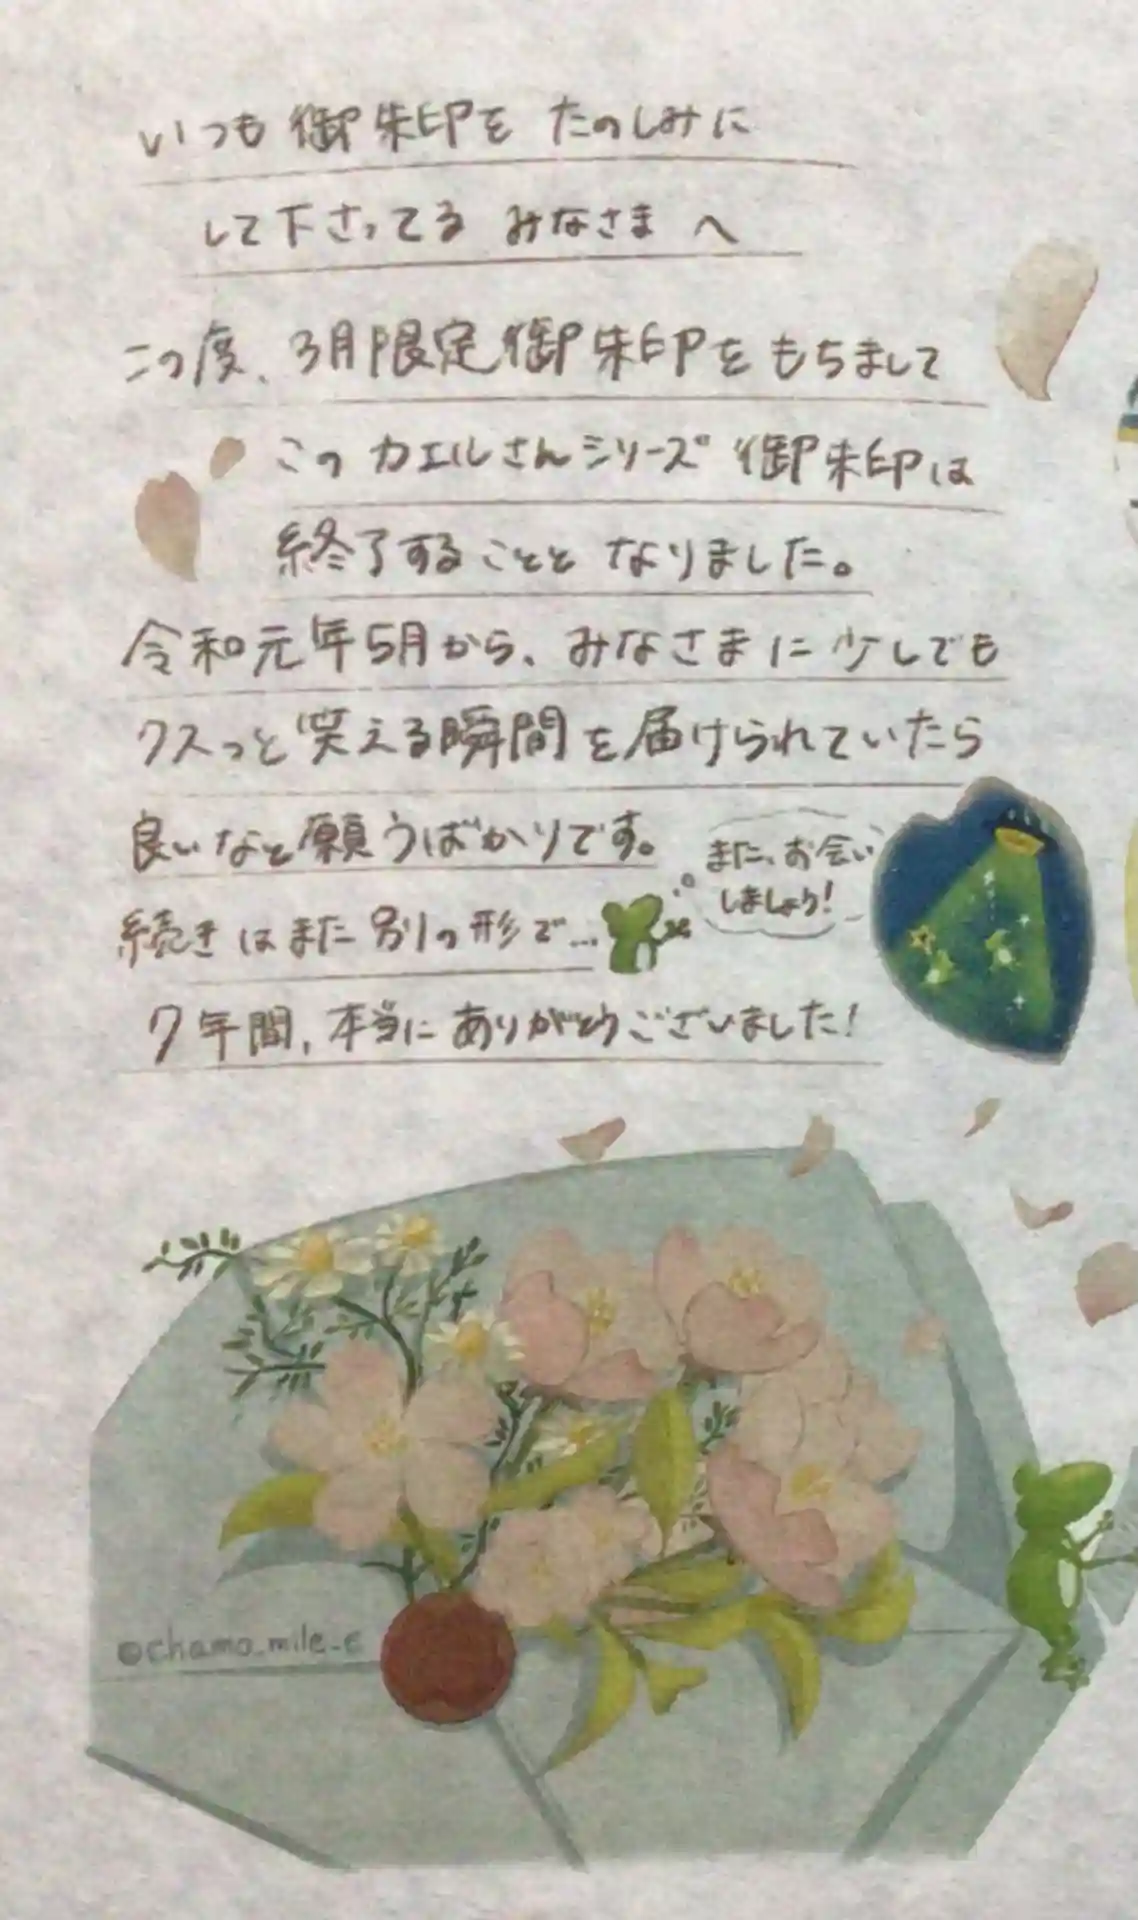 いつも御朱印を たのしみに
して下さってる みなさま へ
この度、3月限定御朱印をもちまして
このカエルさんシリーズ 御朱印は
終了することと なりました。
令和元年5月から、みなさまに少しでも
クスっと笑える瞬間を届けられていたら
良いなと願うばかりです。
また、お会い
しましょう!
続きはまた別の形で…
7年間、本当にありがとうございました!
@chamo_mile_e